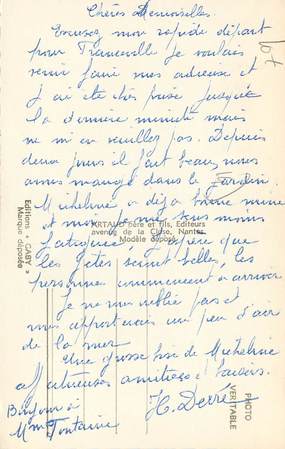 Chères Demoiselles.
Excusez mon rapide départ
pour Franceville Je voulais
venir faire mes adieux et
j'ai été très prise jusqu'à
la dernière minute mais
ne m'en veuillez pas. Depuis
deux jours il fait beau, nous
avons mangé dans le jardin
Micheline a déjà bonne mine
et moi je me sens moins
fatiguée, j'espère que
les fêtes sont belles, les
personnes commencent à arriver
Je ne vous oublie pas et
vous apporterai un peu d'air
de la mer
Une grosse bise de Micheline
affectueuses amitiés et baisers.
H. Derre
Bonjour à
Mme Fontaine
107
Editions "GABY"
Marque déposée
ARTAUD Père et fils, Editeurs
avenue de la Close, Nantes
Modèle déposé
PHOTO
VERITABLE